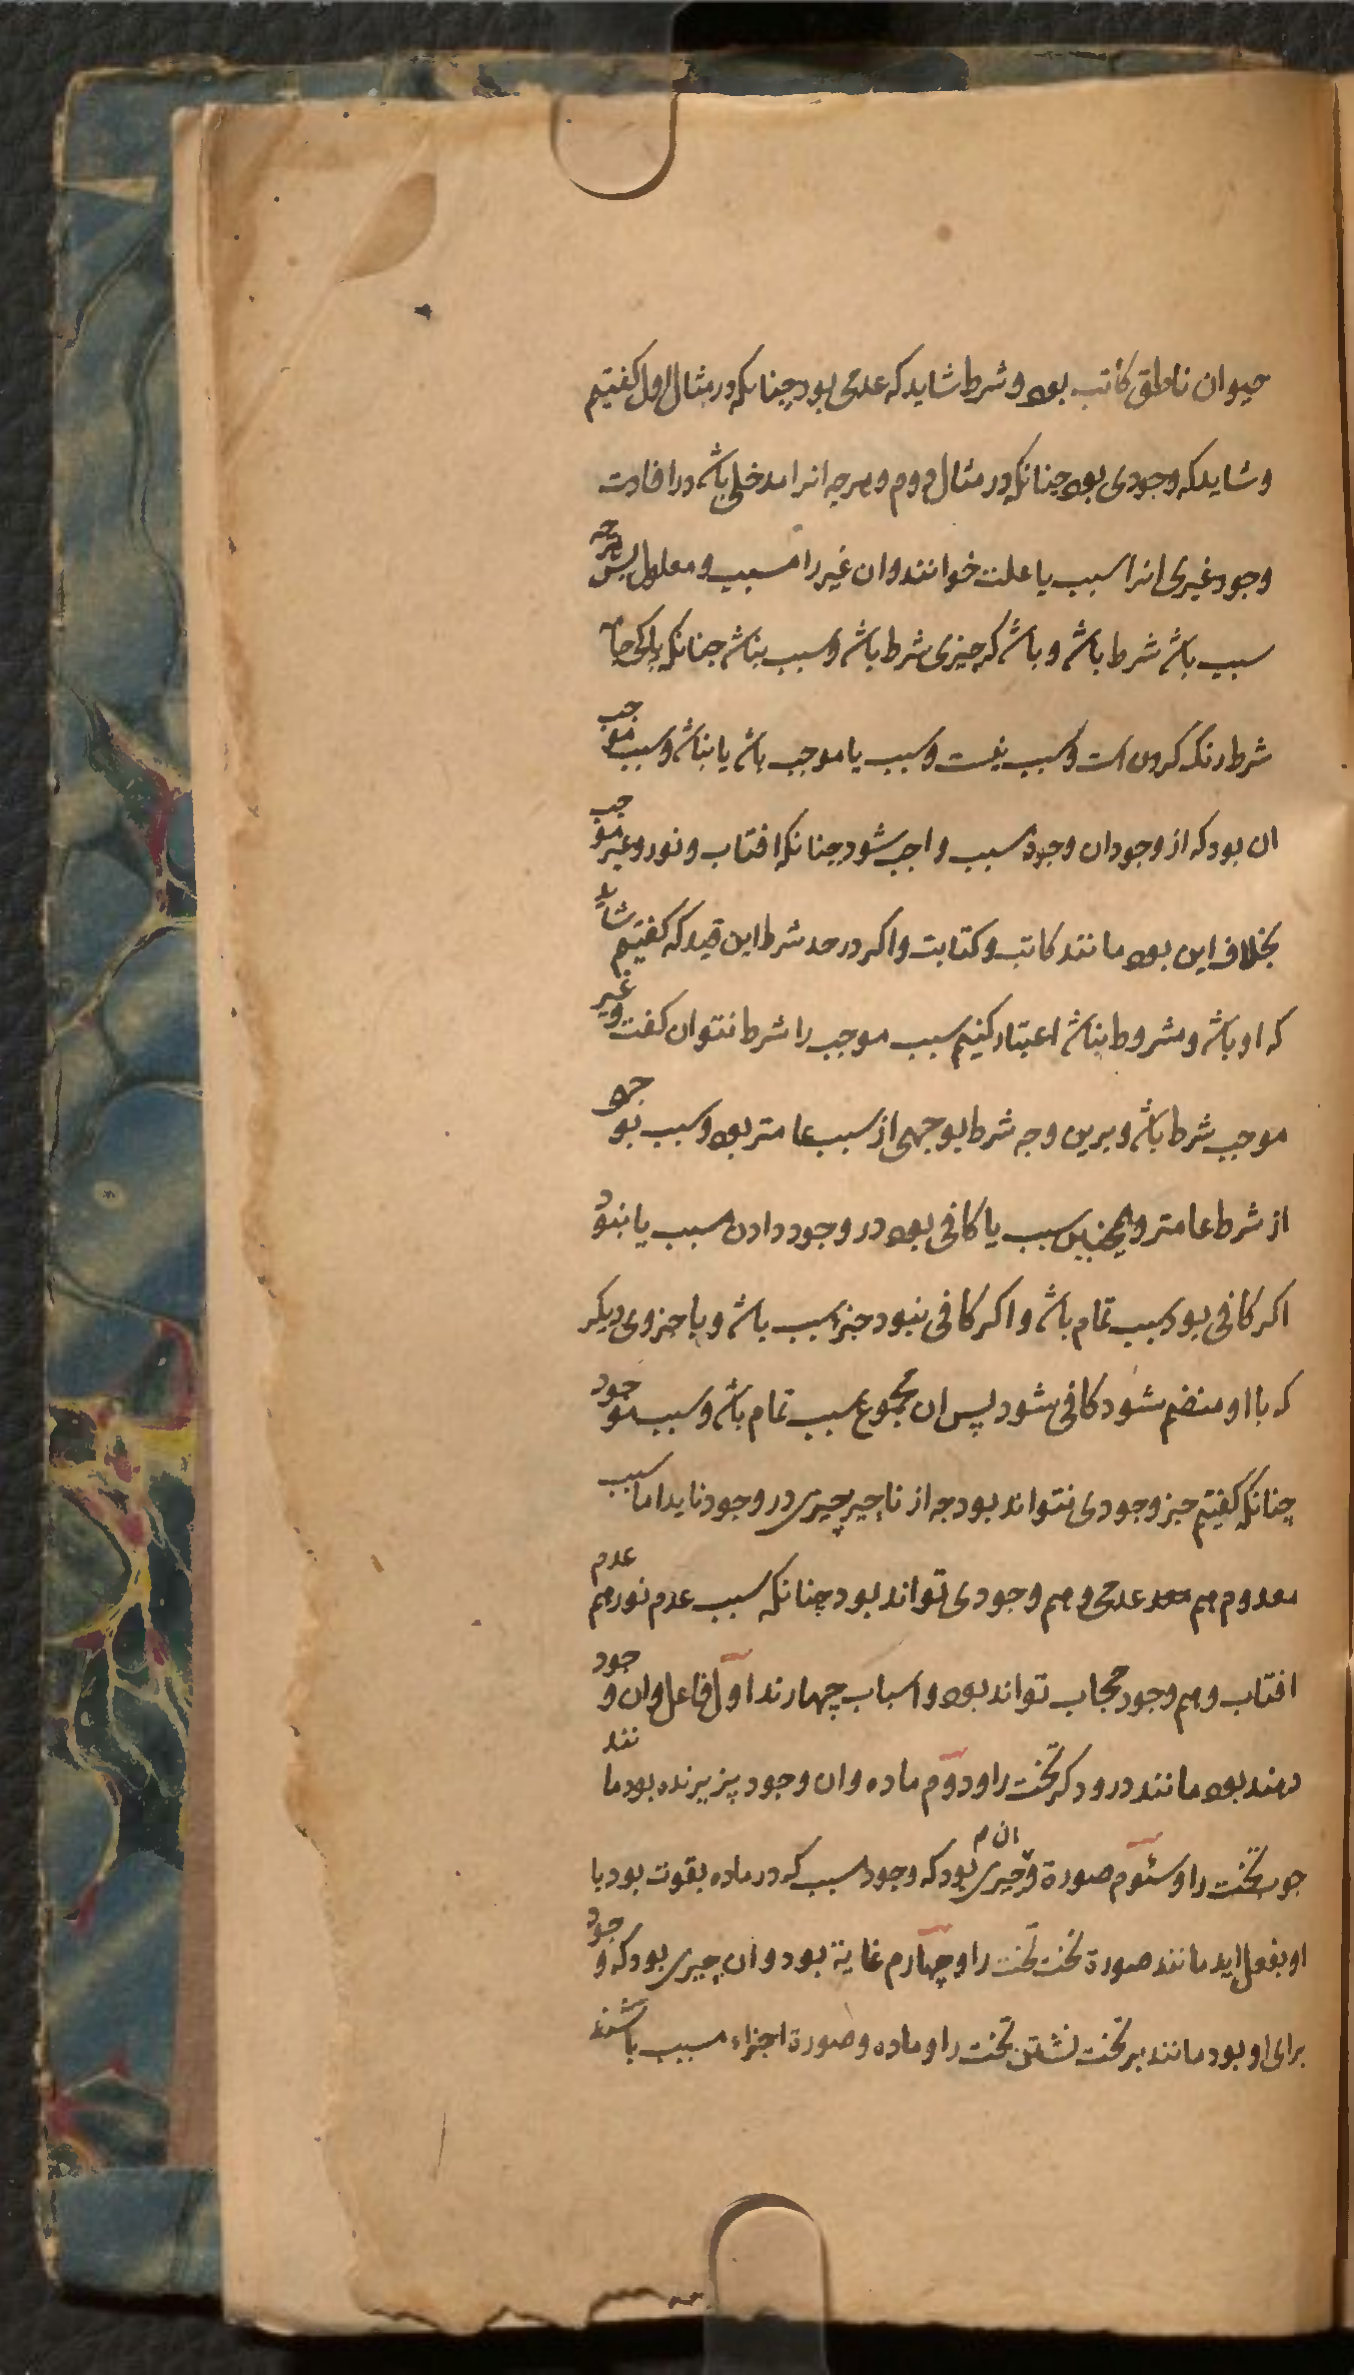 حیوان ناطق کاتب بود و شرط شاید که عدمی بود چنانکه در مثال اول کفتیم
و شاید که وجودی بود چنانکه در مثال دوم و هرچه انرا مدخلی باشد در افادت
وجود غیری انرا سبب یا علت خوانند و ان غیر را مسبب و معلول پس هرچه
سبب باشد شرط باشد و باشد که چیزی شرط باشد و سبب نباشد چنانکه پاکی جامه
شرط رنک کردن است و سبب نیست و سبب یا موجب باشد یا نباشد و سبب موجب
ان بود که از وجود ان وجود مسبب واجب شود چنانکه افتاب و نور و غیر موجب
بخلاف این بود مانند کاتب و کتابت و اکر در حد شرط این قید که کفتیم شاید
که او باشد و مشروط نباشد اعتبار کنیم سبب موجب را شرط نتوان کفت و غیر
موجب شرط باشد و برین وجه شرط بوجهی از سبب عامتر بود و سبب بوجهی
از شرط عامتر و همچنین سبب یا کافی بود در وجود دادن مسبب یا نبود
اکر کافی بود سبب تمام باشد و اکر کافی نبود جزء سبب باشد و با جزوی دیکر
که با او منضم شود کافی شود پس ان مجموع سبب تمام باشد و سبب موجود
چنانکه کفتیم جز وجودی نتواند بود چه از ناچیز چیزی در وجود نیاید اما سبب
معدوم هم عدمی و هم وجودی تواند بود چنانکه سبب عدم نور هم عدم
افتاب و هم وجود حجاب تواند بود و اسباب چهارند اول فاعل و ان وجود
دهنده بود مانند درودکر تخت را و دوم ماده و ان وجود پزیرنده بود مانند
چوب تخت را و سئوم صورة و ان چیزی بود که وجود مسبب که در ماده بقوت بود با
او بفعل اید مانند صورة تخت تخت را و چهارم غایة بود و ان چیزی بود که وجود
برای او بود مانند بر تخت نشستن تخت را و ماده و صورة اجزاء مسبب باشند